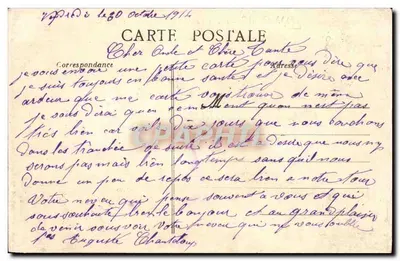 Vendredi le 30 Octobre 1914
CARTE POSTALE
Correspondance Adresse
Cher Oncle et Chère Tante
je vous envoie une petite carte pour vous dire que
je suis toujours en bonne santée et je désire avec
ardeur que ma carte vous trouve de même
je vous dirai que en ce Moment quon nest pas
très bien car voila dix jours que nous couchons
dans les tranchée
serons pas mais bien longtemps sans quil nous
donne un peu de repos ce sera bien a notre tour
Votre neveu qui pense souvent a vous et qui
vous souhaite bien le bonjour et au grand plaisir
de venir vous voir Votre neveu qui ne vous oublie
pas Auguste